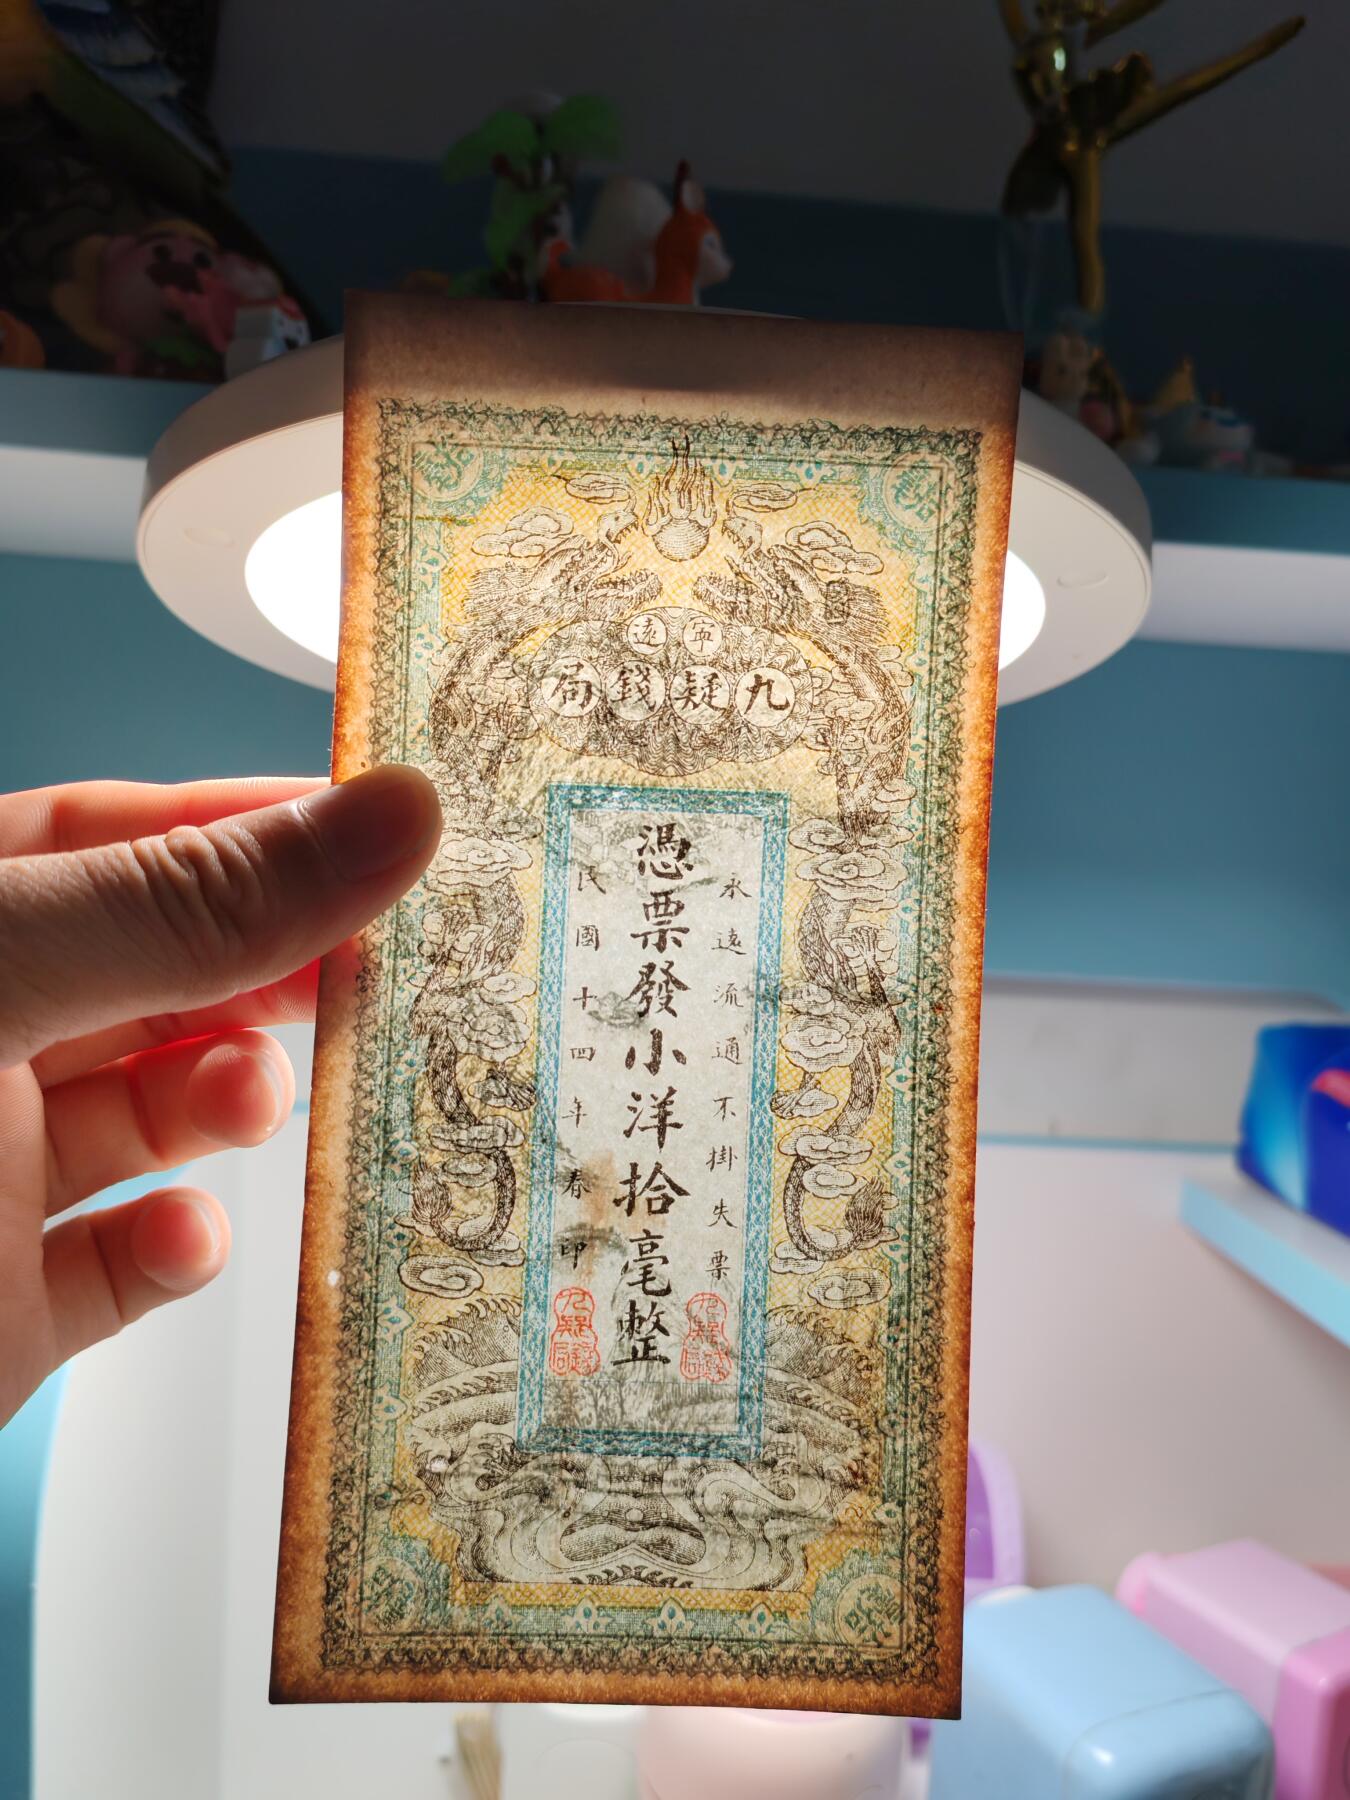 寧遠
九疑錢局
永遠流通不掛失票
憑票發小洋拾毫整
民國十四年春印
九疑錢局
九疑錢局